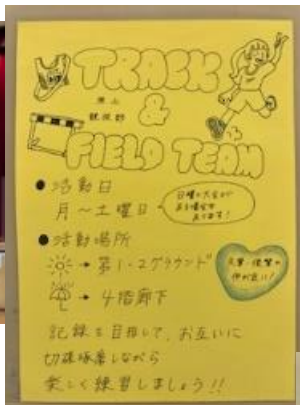 TRACK
陸上
競技部
&
FIELD TEAM
● 活動日
月〜土曜日
日曜に大会が
ある場合も
あります!
● 活動場所
→ 第1・2グラウンド
→ 4階廊下
先輩・後輩の
仲が良い!
記録を目指して、お互いに
切磋琢磨しながら
楽しく練習しましょう!!